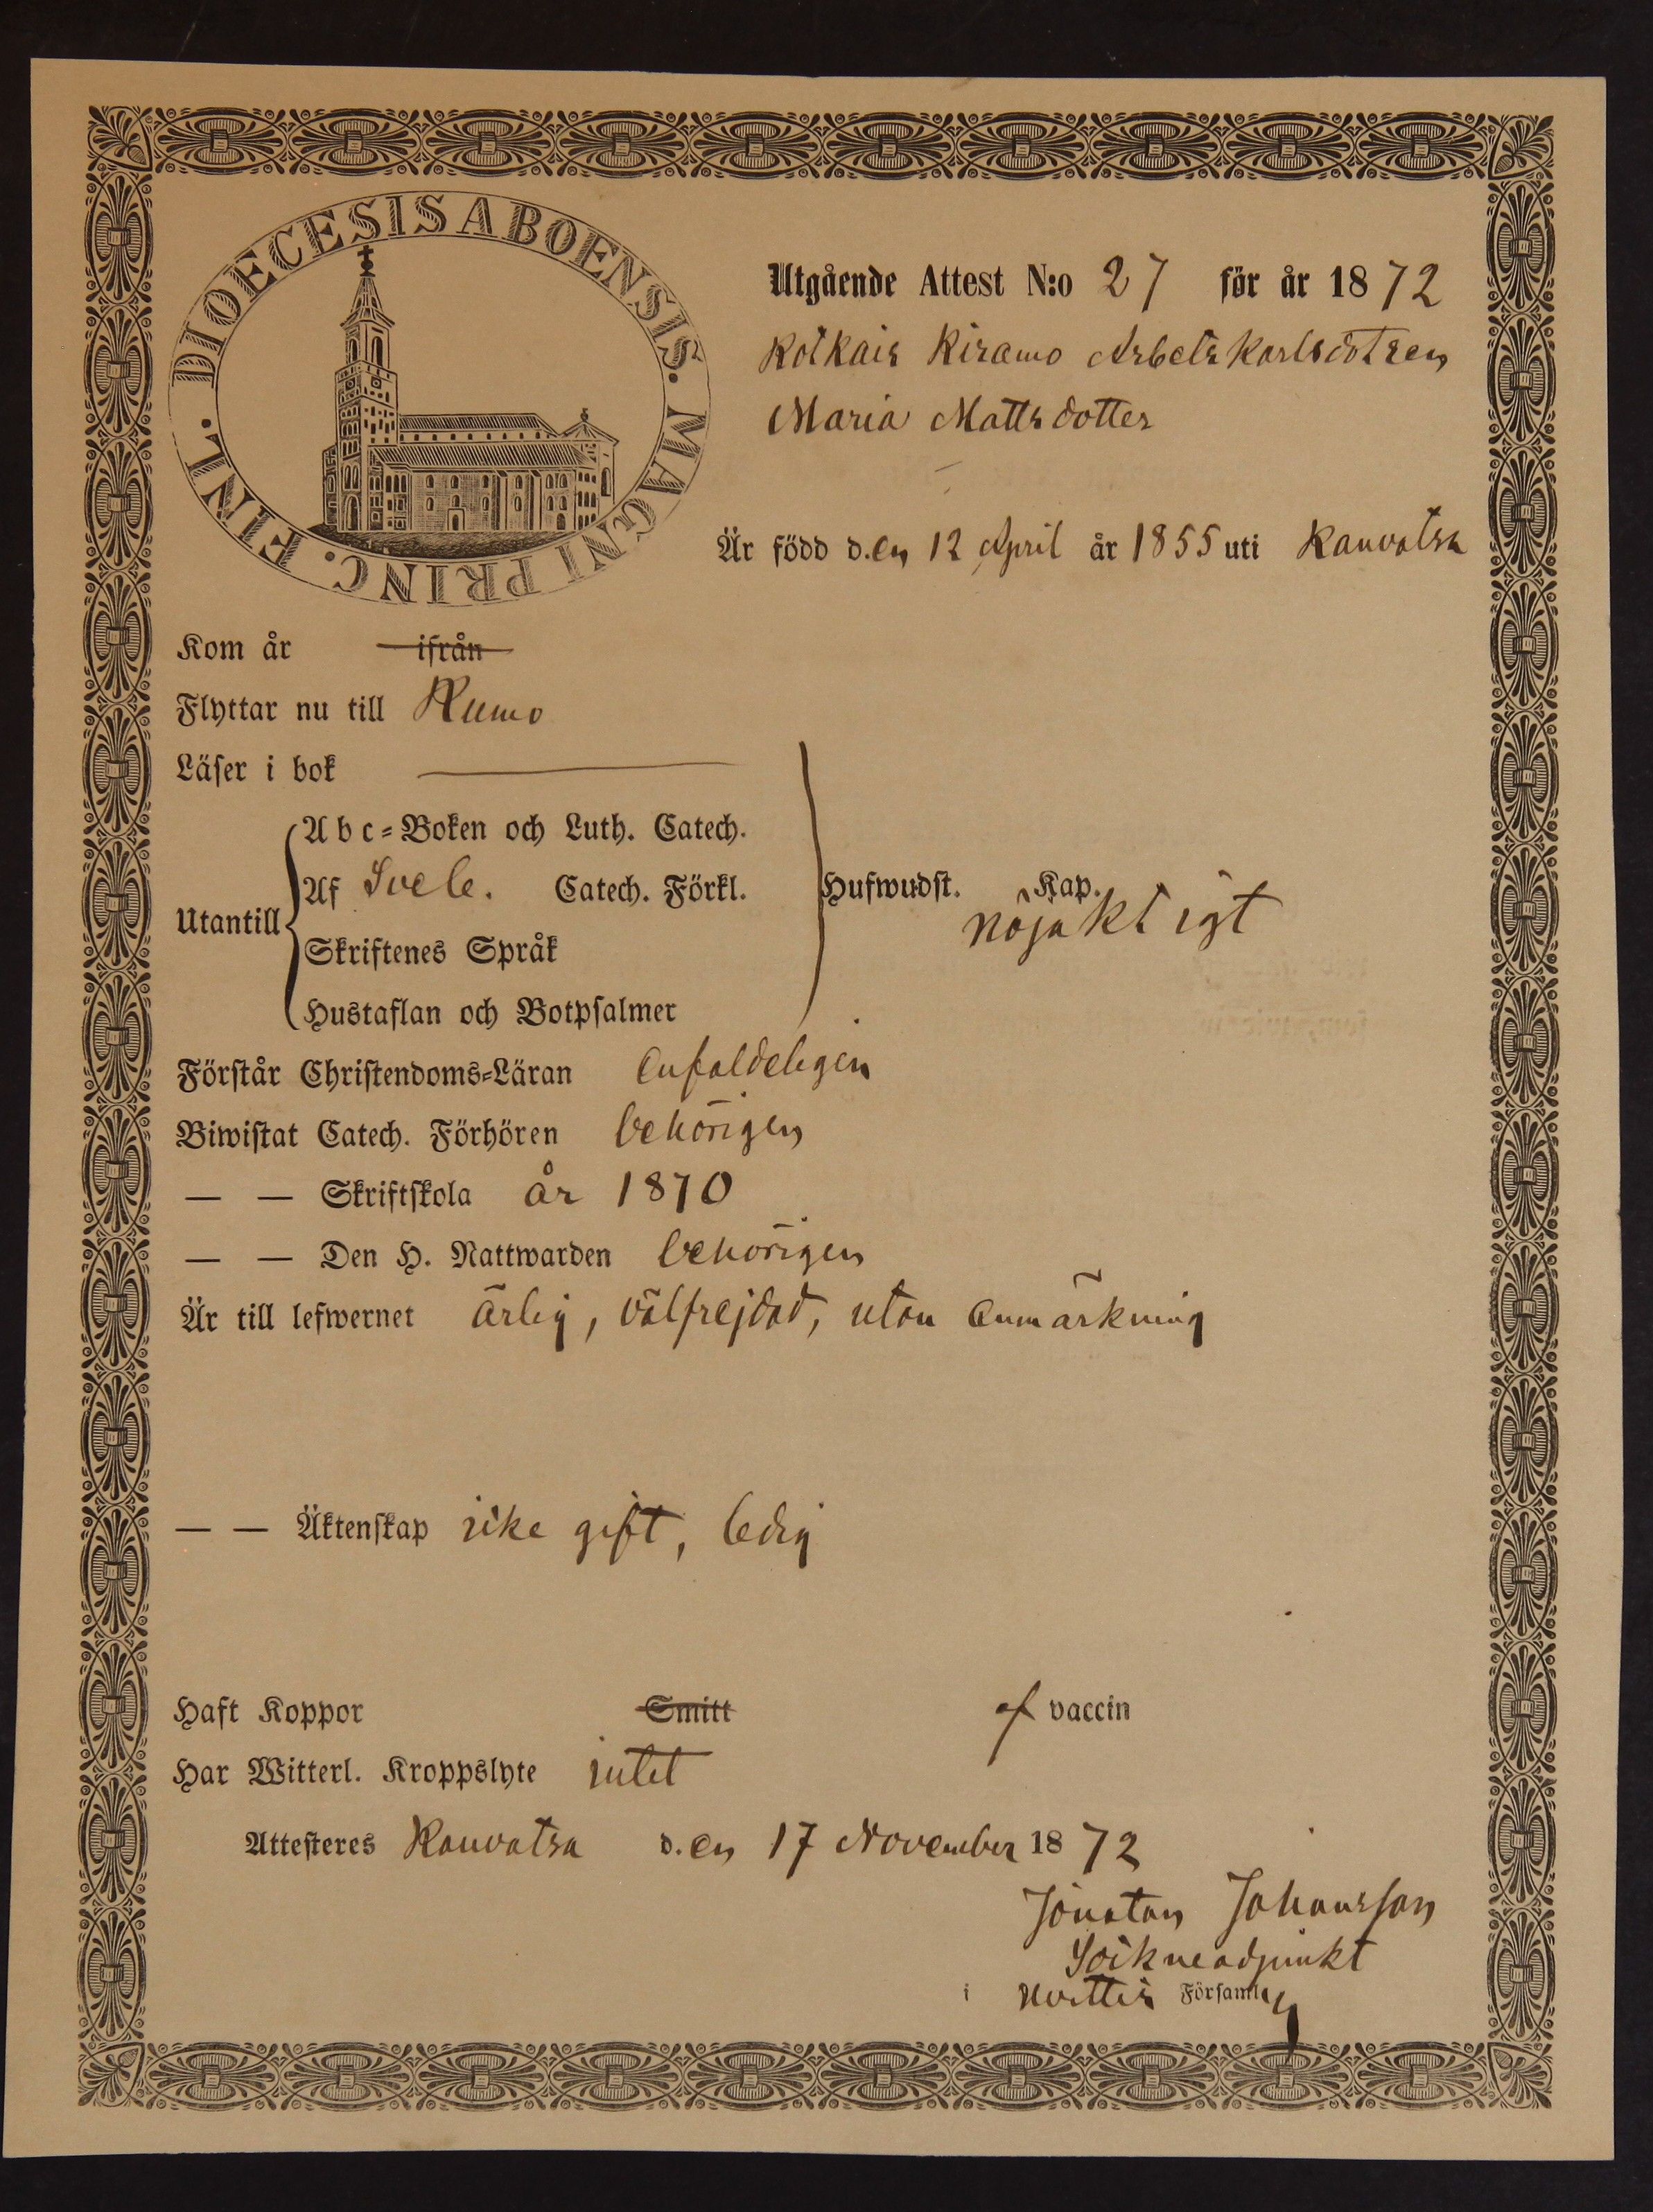 DIOECESIS ABOENSIS. MAGNI PRINC. FINL.
Utgående Attest N:o 27 för år 1872
Kolkais Kiramo Arbetskarlsdotren
Maria Mattsdotter
Är född d.en 12 April år 1855 uti Kauvatsa
Kom år ifrån
Flyttar nu till Kumo
Läser i bok
Utantill
Abc-Boken och Luth. Catech.
Af Sveb. Catech. Förkl.
Skriftenes Språk
Hustaflan och Botpsalmer
Hufwudst. Kap.
nöjaktigt
Förstår Christendoms-Läran enfaldeligen
Biwistat Catech. Förhören behörigen
— — Skriftskola år 1870
— — Den H. Nattwarden behörigen
Är till lefwernet ärlig, välfrejdad, utan anmärkning
— — Äktenskap icke gift, ledig
Haft Koppor Smitt af vaccin
Har Witterl. Kroppslyte intet
Attesteres Kauvatsa d.en 17 November 1872
Jonatan Johansson
Sockneadjunkt
i Församling